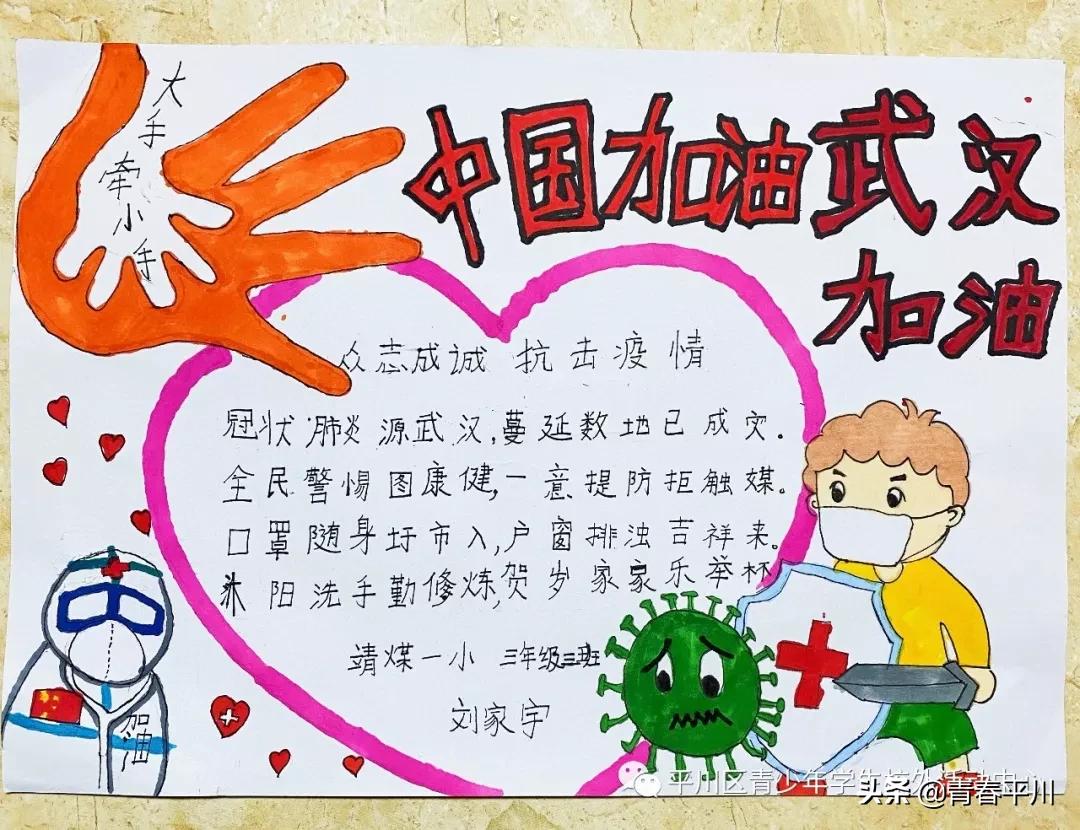 大手
牵小手
中国加油武汉
加油
众志成诚 抗击疫情
冠状肺炎源武汉,蔓延数地已成灾.
全民警惕图康健,一意提防拒触媒。
口罩随身圩市入,户窗排浊吉祥来。
沐阳洗手勤修炼,贺岁家家乐举杯
靖煤一小 三年级三班
刘家宇
加油
平川区青少年学生校外活动中心
头条 @青春平川